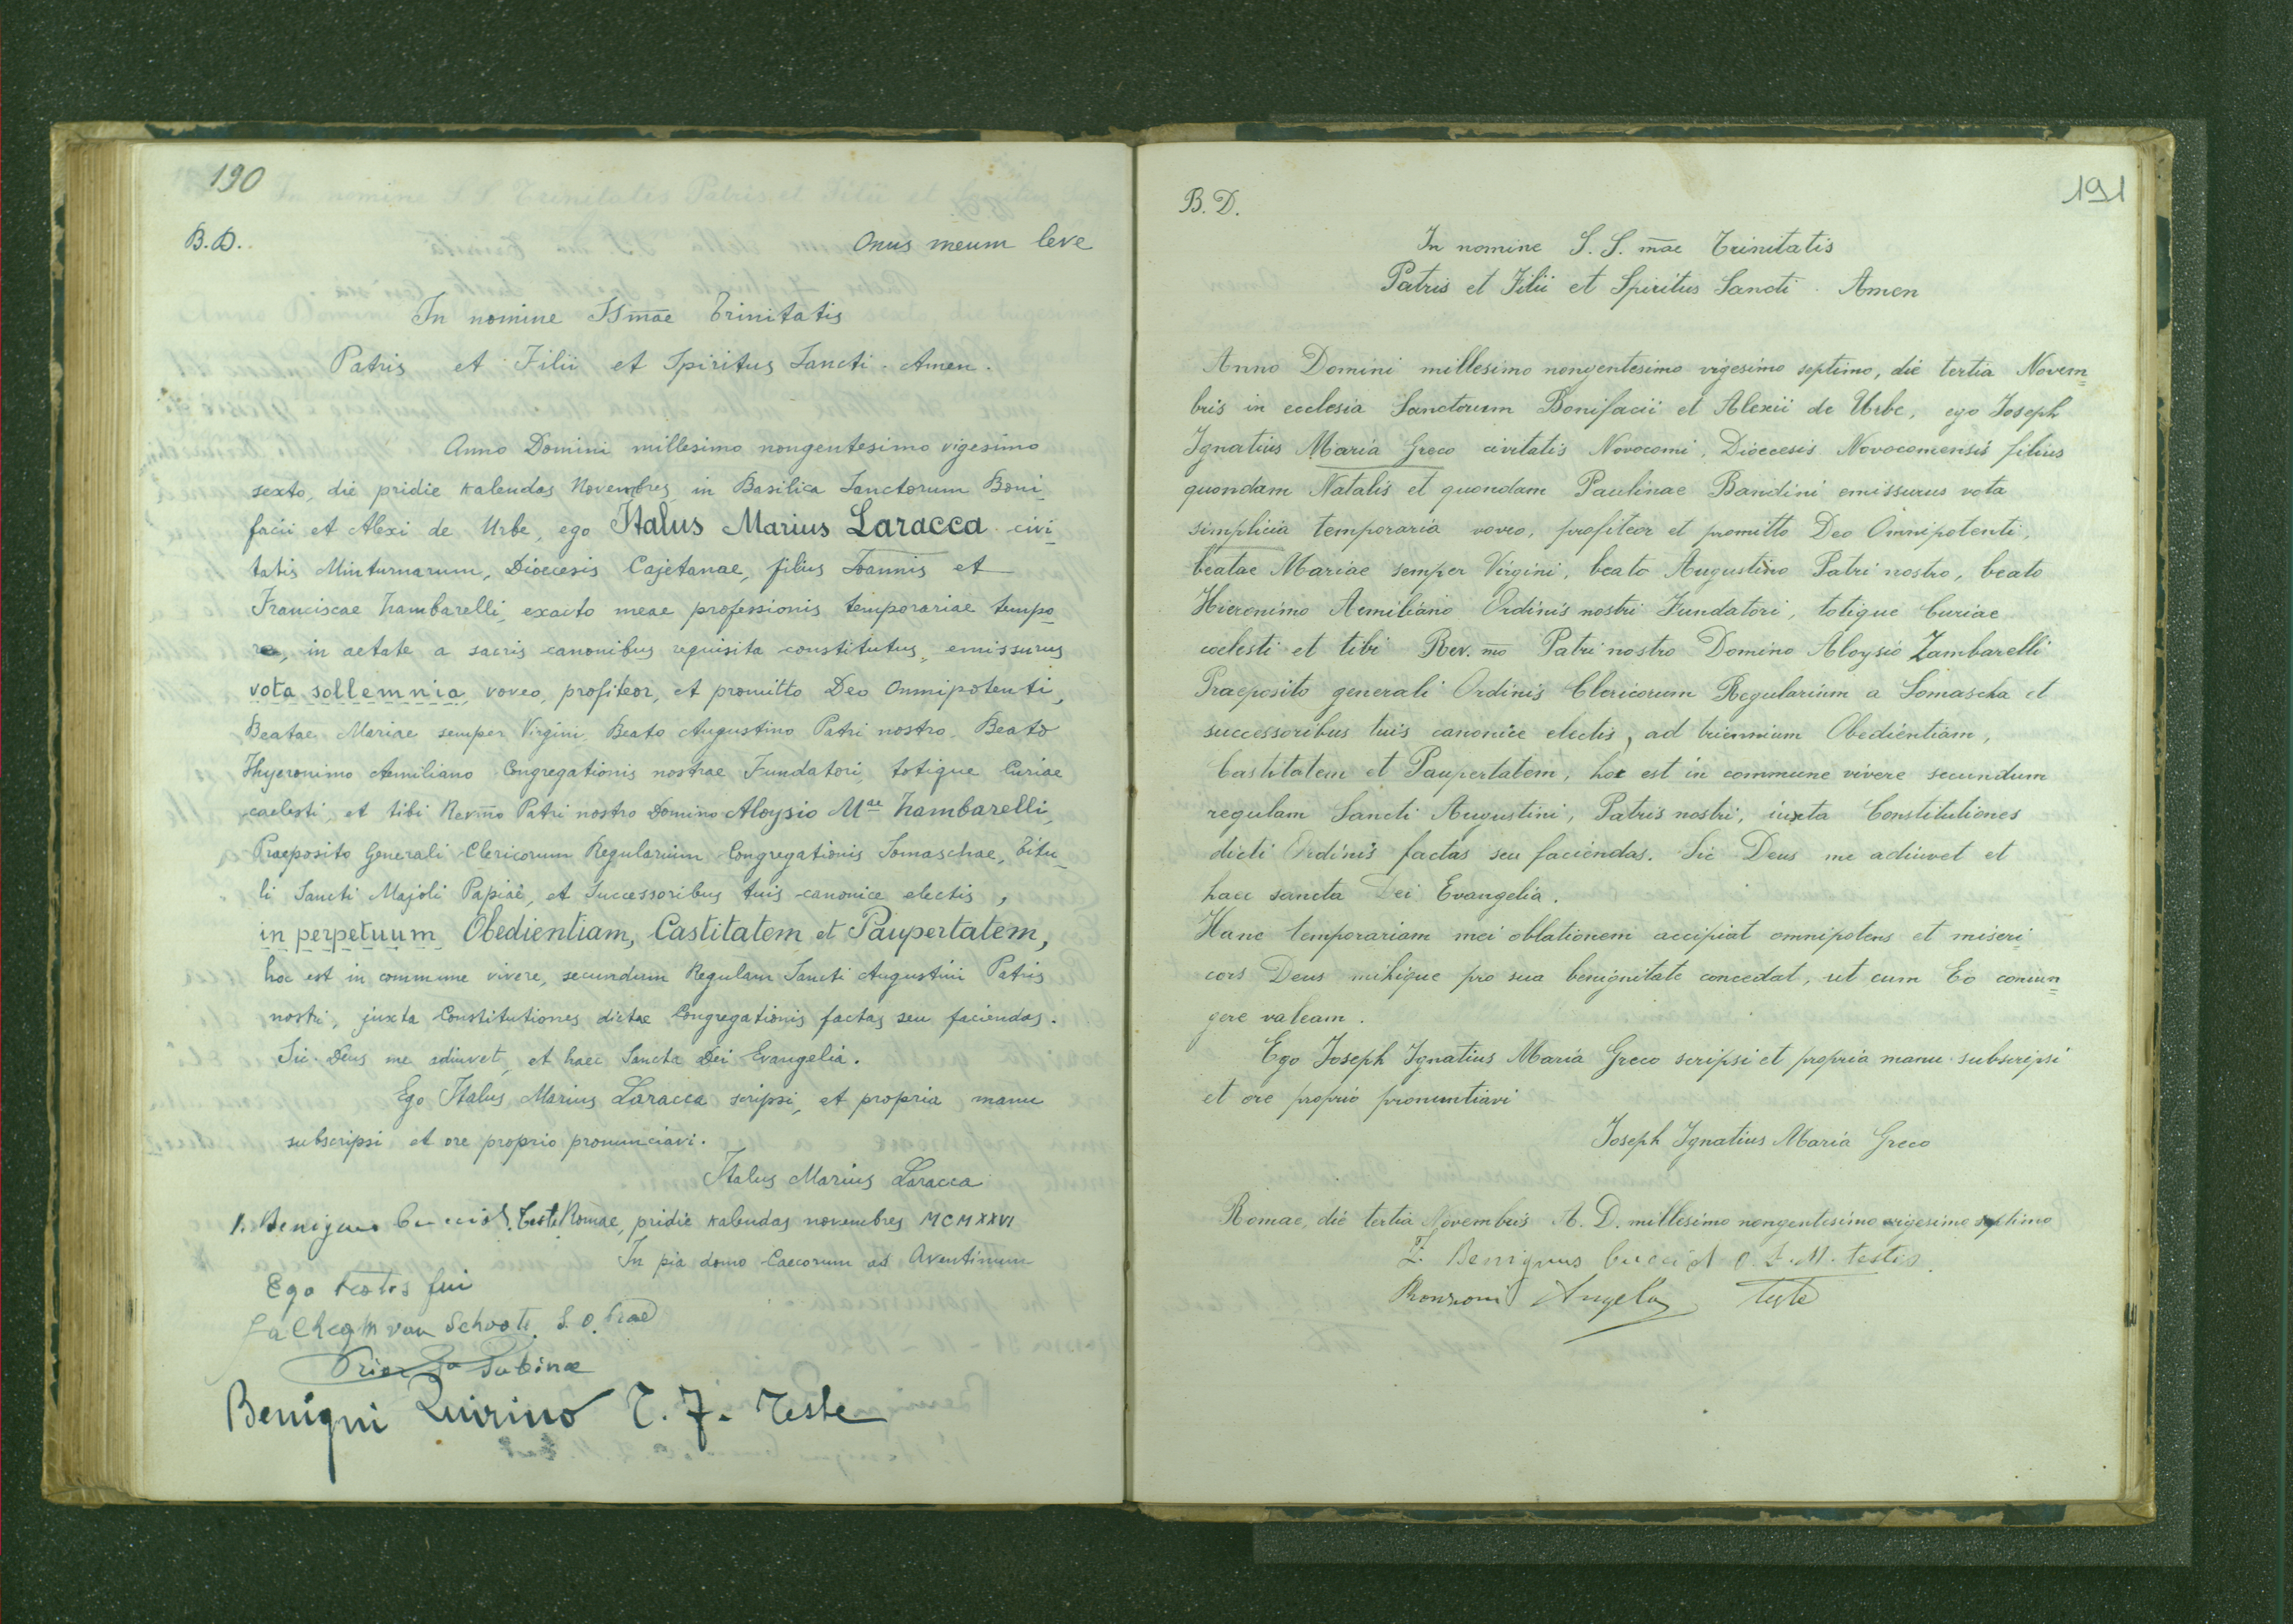 190
B.D.
Onus meum leve
In nomine SSm̄ae Trinitatis
Patris et Filii et Spiritus Sancti. Amen.
Anno Domini millesimo nongentesimo vigesimo
sexto, die pridie kalendas Novembres, in Basilica Sanctorum Boni_
facii et Alexi de Urbe, ego Italus Marius Laracca civi_
tatis Minturnarum, Dioecesis Cajetanae, filius Joannis et
Franciscae Zambarelli, exacto meae professionis temporariae tempo_
re, in aetate a sacris canonibus requisita constitutus, emissurus
vota sollemnia, voveo, profiteor, et promitto Deo Omnipotenti,
Beatae Mariae semper Virgini, Beato Augustino Patri nostro, Beato
Hyeronimo Aemiliano Congregationis nostrae Fundatori, totique Curiae
caelesti, et tibi Revm̄o Patri nostro Domino Aloysio Mae Zambarelli,
Praeposito Generali Clericorum Regularium Congregationis Somaschae, Titu_
li Sancti Majoli Papiae, et Successoribus tuis canonice electis,
in perpetuum Obedientiam, Castitatem et Paupertatem,
hoc est in commune vivere, secundum Regulam Sancti Augustini Patris
nostri, juxta Constitutiones dictae Congregationis factas seu faciendas.
Sic Deus me adiuvet, et haec Sancta Dei Evangelia.
Ego Italus Marius Laracca scripsi, et propria manu
subscripsi et ore proprio pronunciavi.
Italus Marius Laracca
Teste Romae, pridie kalendas novembres MCMXXVI
In pia domo Caecorum ad Aventinum
Ego testis fui
van Schoote. S. O. Praed
Prior Sa Sabinae
Benigni Quirino T. F. Teste
191
B. D.
In nomine S. S. m̄ae Trinitatis
Patris et Filii et Spiritus Sancti. Amen
Anno Domini millesimo nongentesimo vigesimo septimo, die tertia Novem=
bris in ecclesia Sanctorum Bonifacii et Alexii de Urbe, ego Joseph
Ignatius Maria Greco civitatis Novocomi, Dioecesis Novocomensis filius
quondam Natalis et quondam Paulinae Bandini emissurus vota
simplicia temporaria voveo, profiteor et promitto Deo Omnipotenti,
beatae Mariae semper Virgini, beato Augustino Patri nostro, beato
Hieronimo Aemiliano Ordinis nostri Fundatori, totique Curiae
coelesti et tibi Rev. mo Patri nostro Domino Aloysio Zambarelli
Praeposito generali Ordinis Clericorum Regularium a Somascha et
successoribus tuis canonice electis, ad triennium Obedientiam,
Castitatem et Paupertatem, hoc est in commune vivere secundum
regulam Sancti Augustini, Patris nostri, iuxta Constitutiones
dicti Ordinis factas seu faciendas. Sic Deus me adiuvet et
haec sancta Dei Evangelia.
Hanc temporariam mei oblationem accipiat omnipotens et miseri_
cors Deus mihique pro sua benignitate concedat, ut cum Eo coniun=
gere valeam.
Ego Joseph Ignatius Maria Greco scripsi et propria manu subscripsi
et ore proprio pronuntiavi
Joseph Ignatius Maria Greco
Romae, die tertia Novembris A. D. millesimo nongentesimo vigesimo septimo
Benignus testis
Ronzoni Angelo Teste